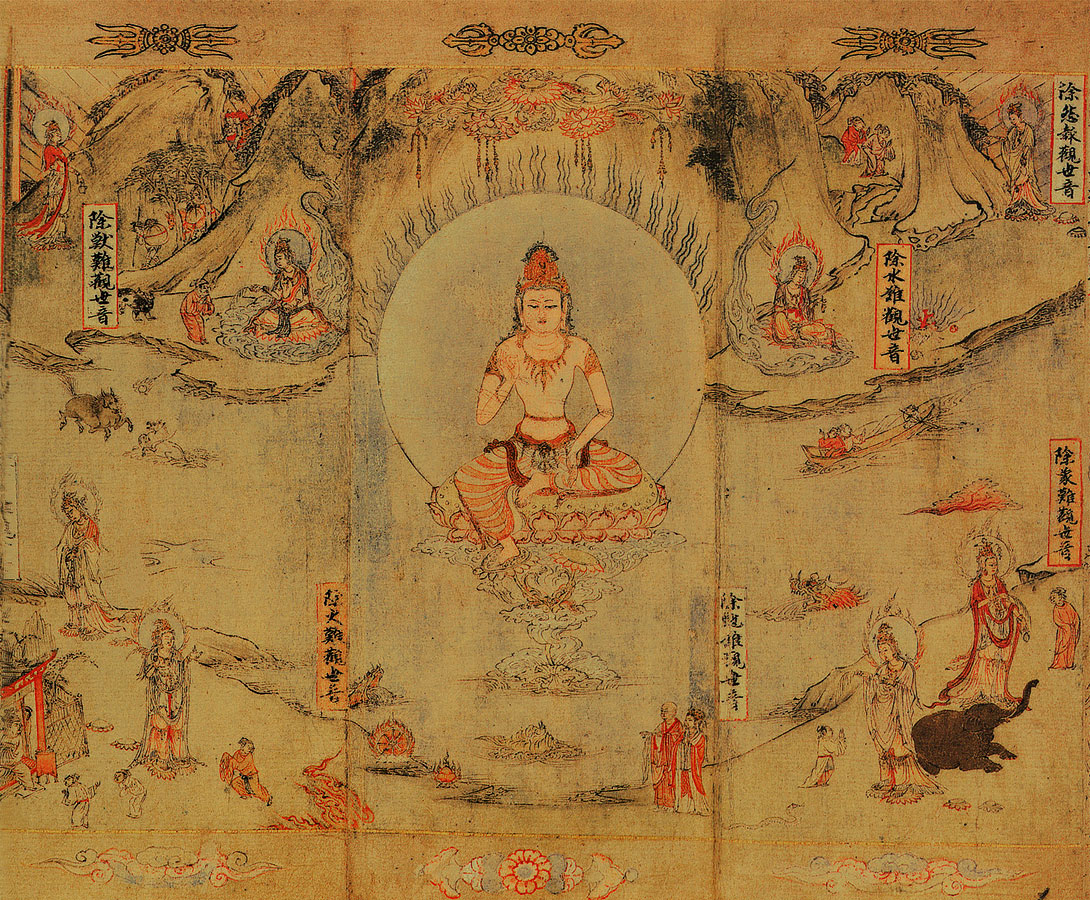 除怨報觀世音
除水難觀世音
除象難觀世音
除虵難觀世音
除火難觀世音
除獸難觀世音